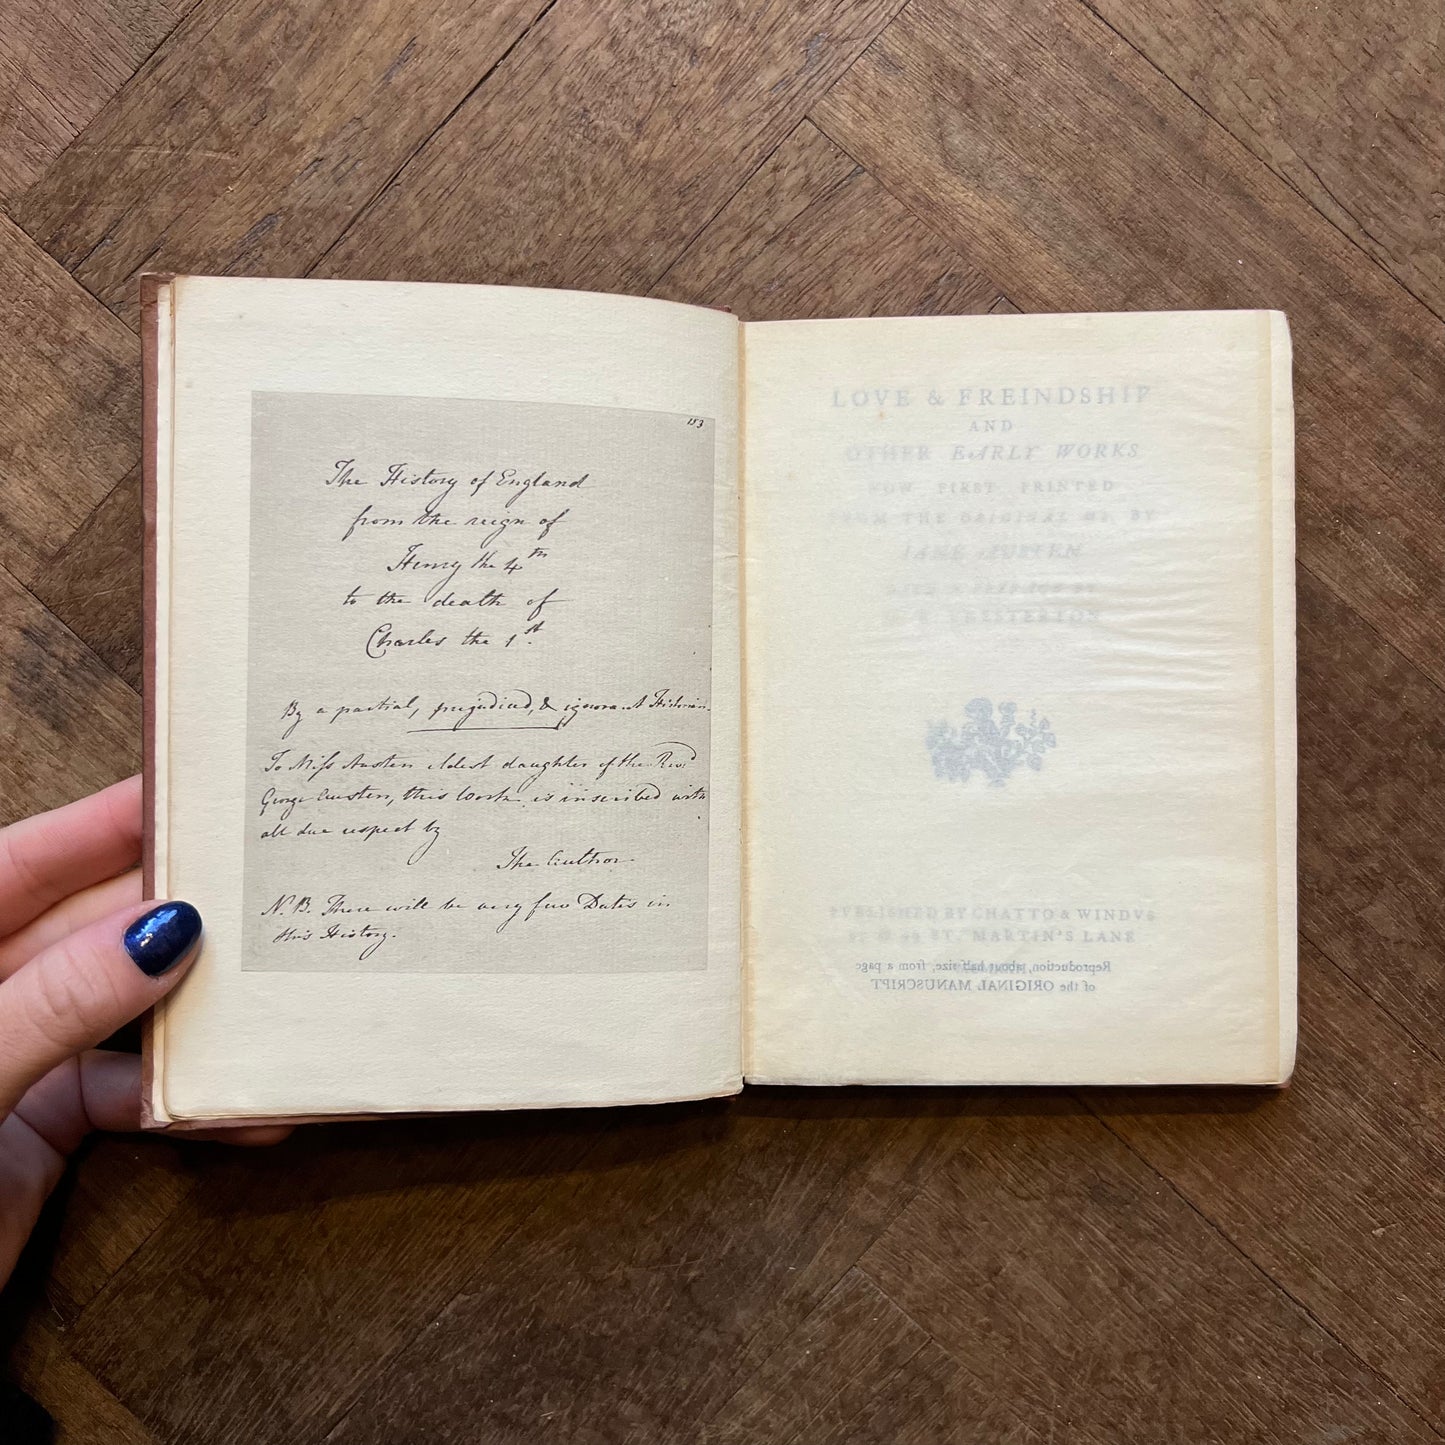 153
The History of England
from the reign of
Henry the 4th
to the death of
Charles the 1st.
By a partial, prejudiced, & ignorant Historian.
To Miss Austen eldest daughter of the Revd
George Austen, this Work is inscribed with
all due respect by
The Author.
N.B. There will be very few Dates in
this History.
LOVE & FREINDSHIP
AND
OTHER EARLY WORKS
NOW FIRST PRINTED
FROM THE ORIGINAL MS. BY
JANE AUSTEN
PREFACE BY
CHESTERTON
PVBLISHED BY CHATTO & WINDVS
ST. MARTIN'S LANE
Reproduction, about half-size, from a page
of the ORIGINAL MANUSCRIPT